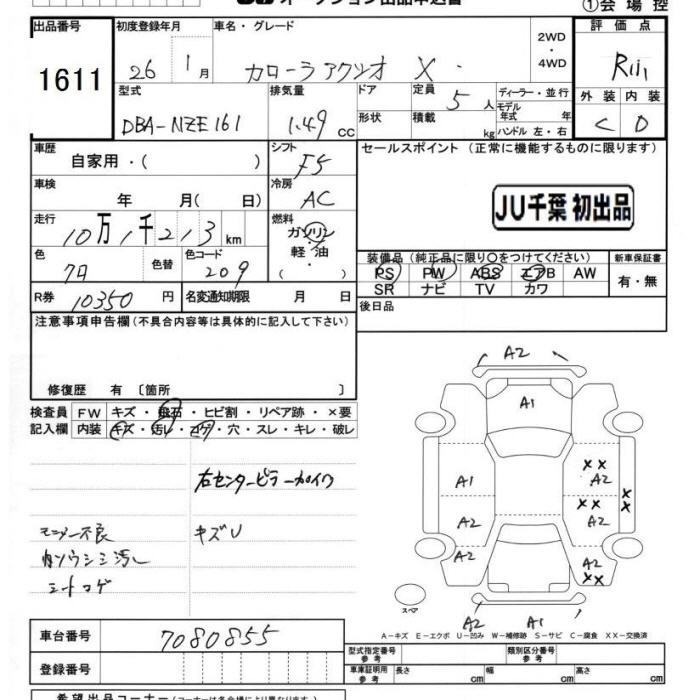 ①会場控
出品番号 初度登録年月 車名・グレード 2WD ・ 4WD 評価点
1611 26 1月 カローラアクシオ X
外装 内装
C D
型式 排気量 ドア 定員 5人 ディーラー・並行
DBA-NZE161 1.49cc 形状 積載 kg モデル年式 年
ハンドル 左・右
車歴 シフト セールスポイント(正常に機能するものに限ります)
自家用・( ) F5
車検 冷房 JU千葉 初出品
年 月( 日) AC
走行 燃料
10万1千213km ガソリン・軽油・( )
色 色替 色コード 装備品(純正品に限り○をつけてください) 新車保証書
クロ 209 PS PW ABS エアB AW 有・無
SR ナビ TV カワ
R券 10350円 名変通知期限 月 日 後日品
注意事項申告欄(不具合内容等は具体的に記入して下さい)
修復歴 有 〔箇所 〕
検査員 FW キズ・飛石・ヒビ割・リペア跡・×要
記入欄 内装 キズ・汚レ・コゲ・穴・スレ・キレ・破レ
右センターピラーカイワ
モニター不良 キズU
シートコゲ
A2
A1
A1 XX A2
A2 XX A2 XX
A2 A2 XX
スペア
A2 A1
A-キズ E-エクボ U-凹み W-補修跡 S-サビ C-腐食 XX-交換済
車台番号 7080855
登録番号
型式指定番号 参考 類別区分番号 参考
車庫証明用 参考 長さ cm 幅 cm 高さ cm